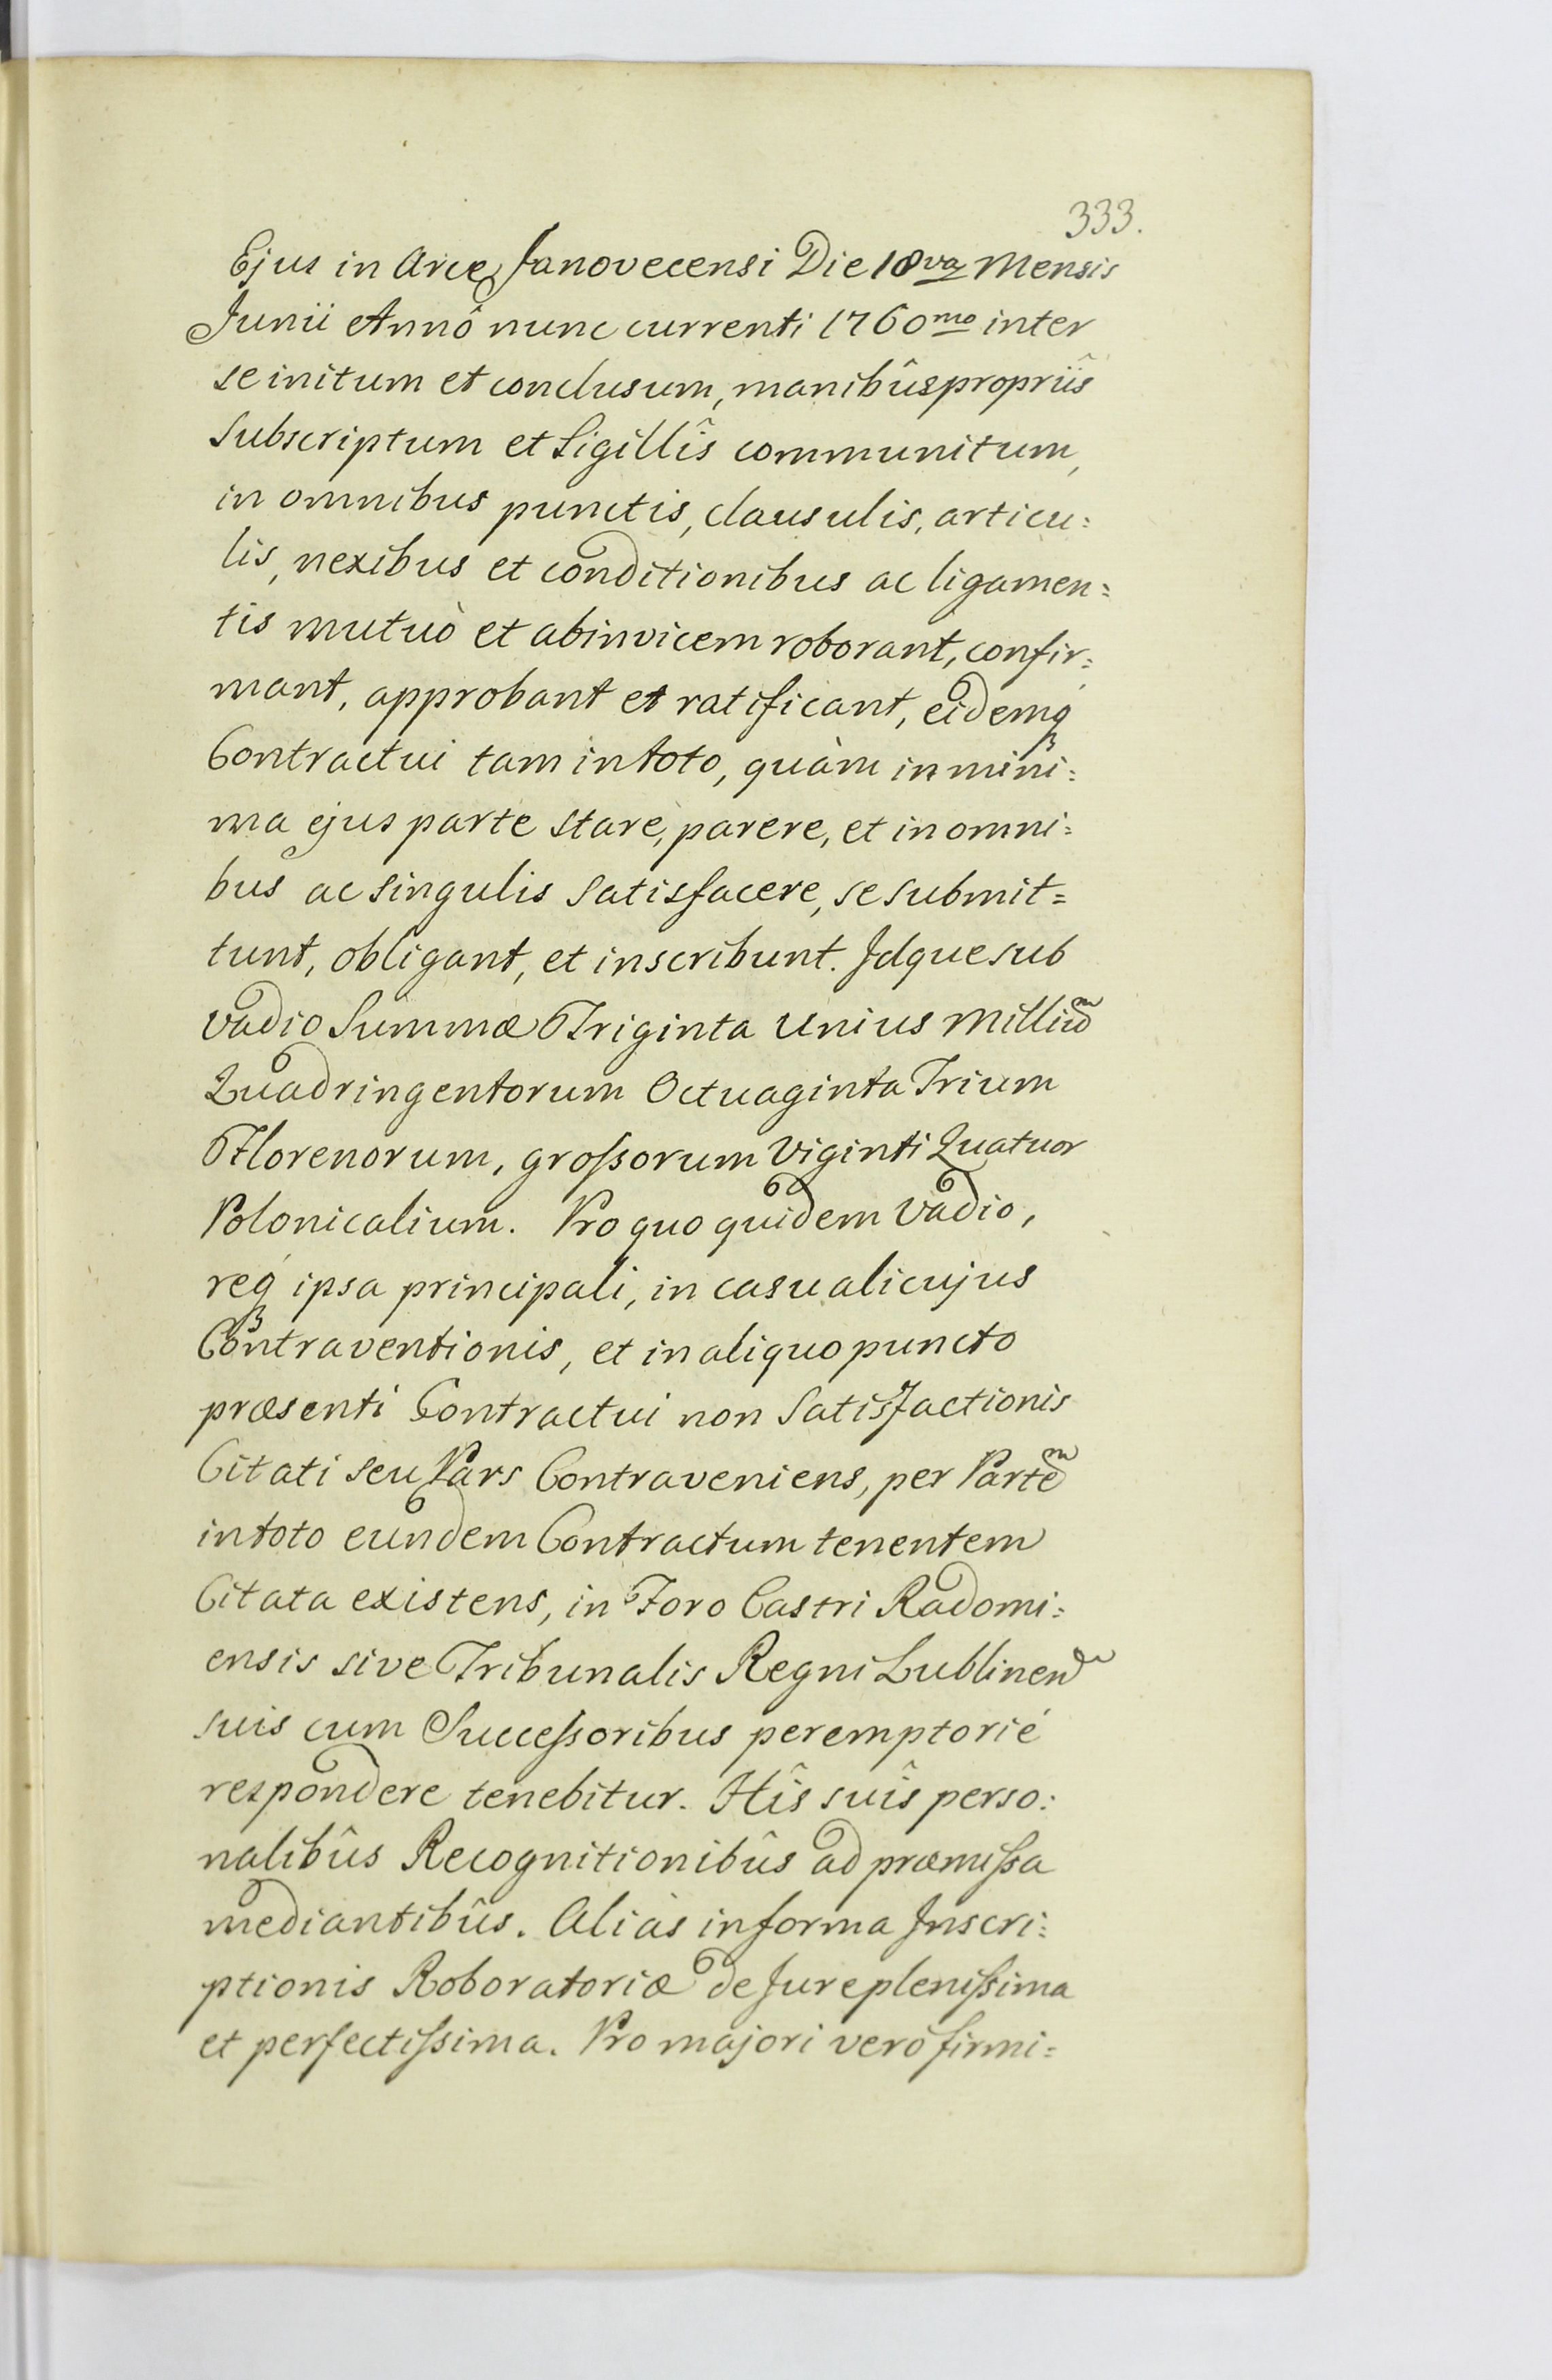 333.
Ejus in Arce Janovecensi Die 18va Mensis
Junii Annô nunc currenti 1760mo inter
se initum et conclusum, manibûs propriîs
Subscriptum et Sigillîs communitum,
in omnibus punctis, clausulis, articu:
lis, nexibus et conditionibus ac ligamen:
tis mutuò et abinvicem roborant, confir:
mant, approbant et ratificant, eidemqꝫ
Contractui tam in toto, quàm in mini:
ma ejus parte stare, parere, et in omni:
bus ac singulis satisfacere, se submit=
tunt, obligant, et inscribunt. Idque sub
vadio Summæ Triginta Unius Milliũ
Quadringentorum Octuaginta Trium
Florenorum, groſsorum Viginti Quatuor
Polonicalium. Pro quo quidem Vadio,
reqꝫ ipsa principali, in casu alicujus
Contraventionis, et in aliquo puncto
præsenti Contractui non Satisfactionis
Citati seu Pars Contraveniens, per Partẽ
in toto eundem Contractum tenentem
Citata existens, in Foro Castri Radomi:
ensis sive Tribunalis Regni Lublinen
suis cum Succeſsoribus peremptorié
respondere tenebitur. Hîs suîs perso:
nalibûs Recognitionibûs ad præmiſsa
mediantibûs. Aliàs in forma Inscri:
ptionis Roboratoriæ de Jure pleniſsima
et perfectiſsima. Pro majori verò firmi=